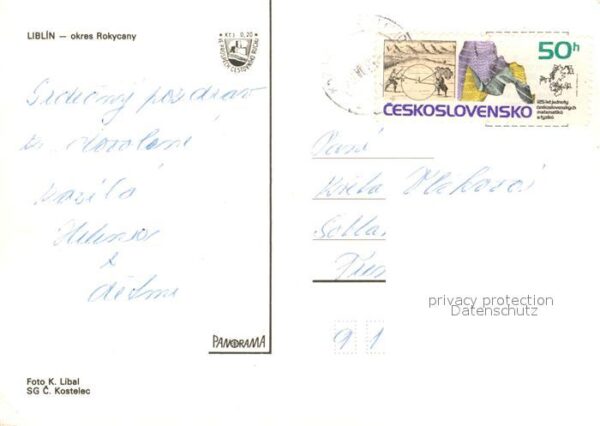 LIBLÍN — okres Rokycany
Kčs 0,20
50h
ČESKOSLOVENSKO
125 let jednoty
československých
matematiků
a fyziků
Srdečný pozdrav
z dovolené
posílá
Helena
s
dětmi
Paní
Květa
privacy protection
Datenschutz
9 1
PANORAMA
Foto K. Líbal
SG Č. Kostelec